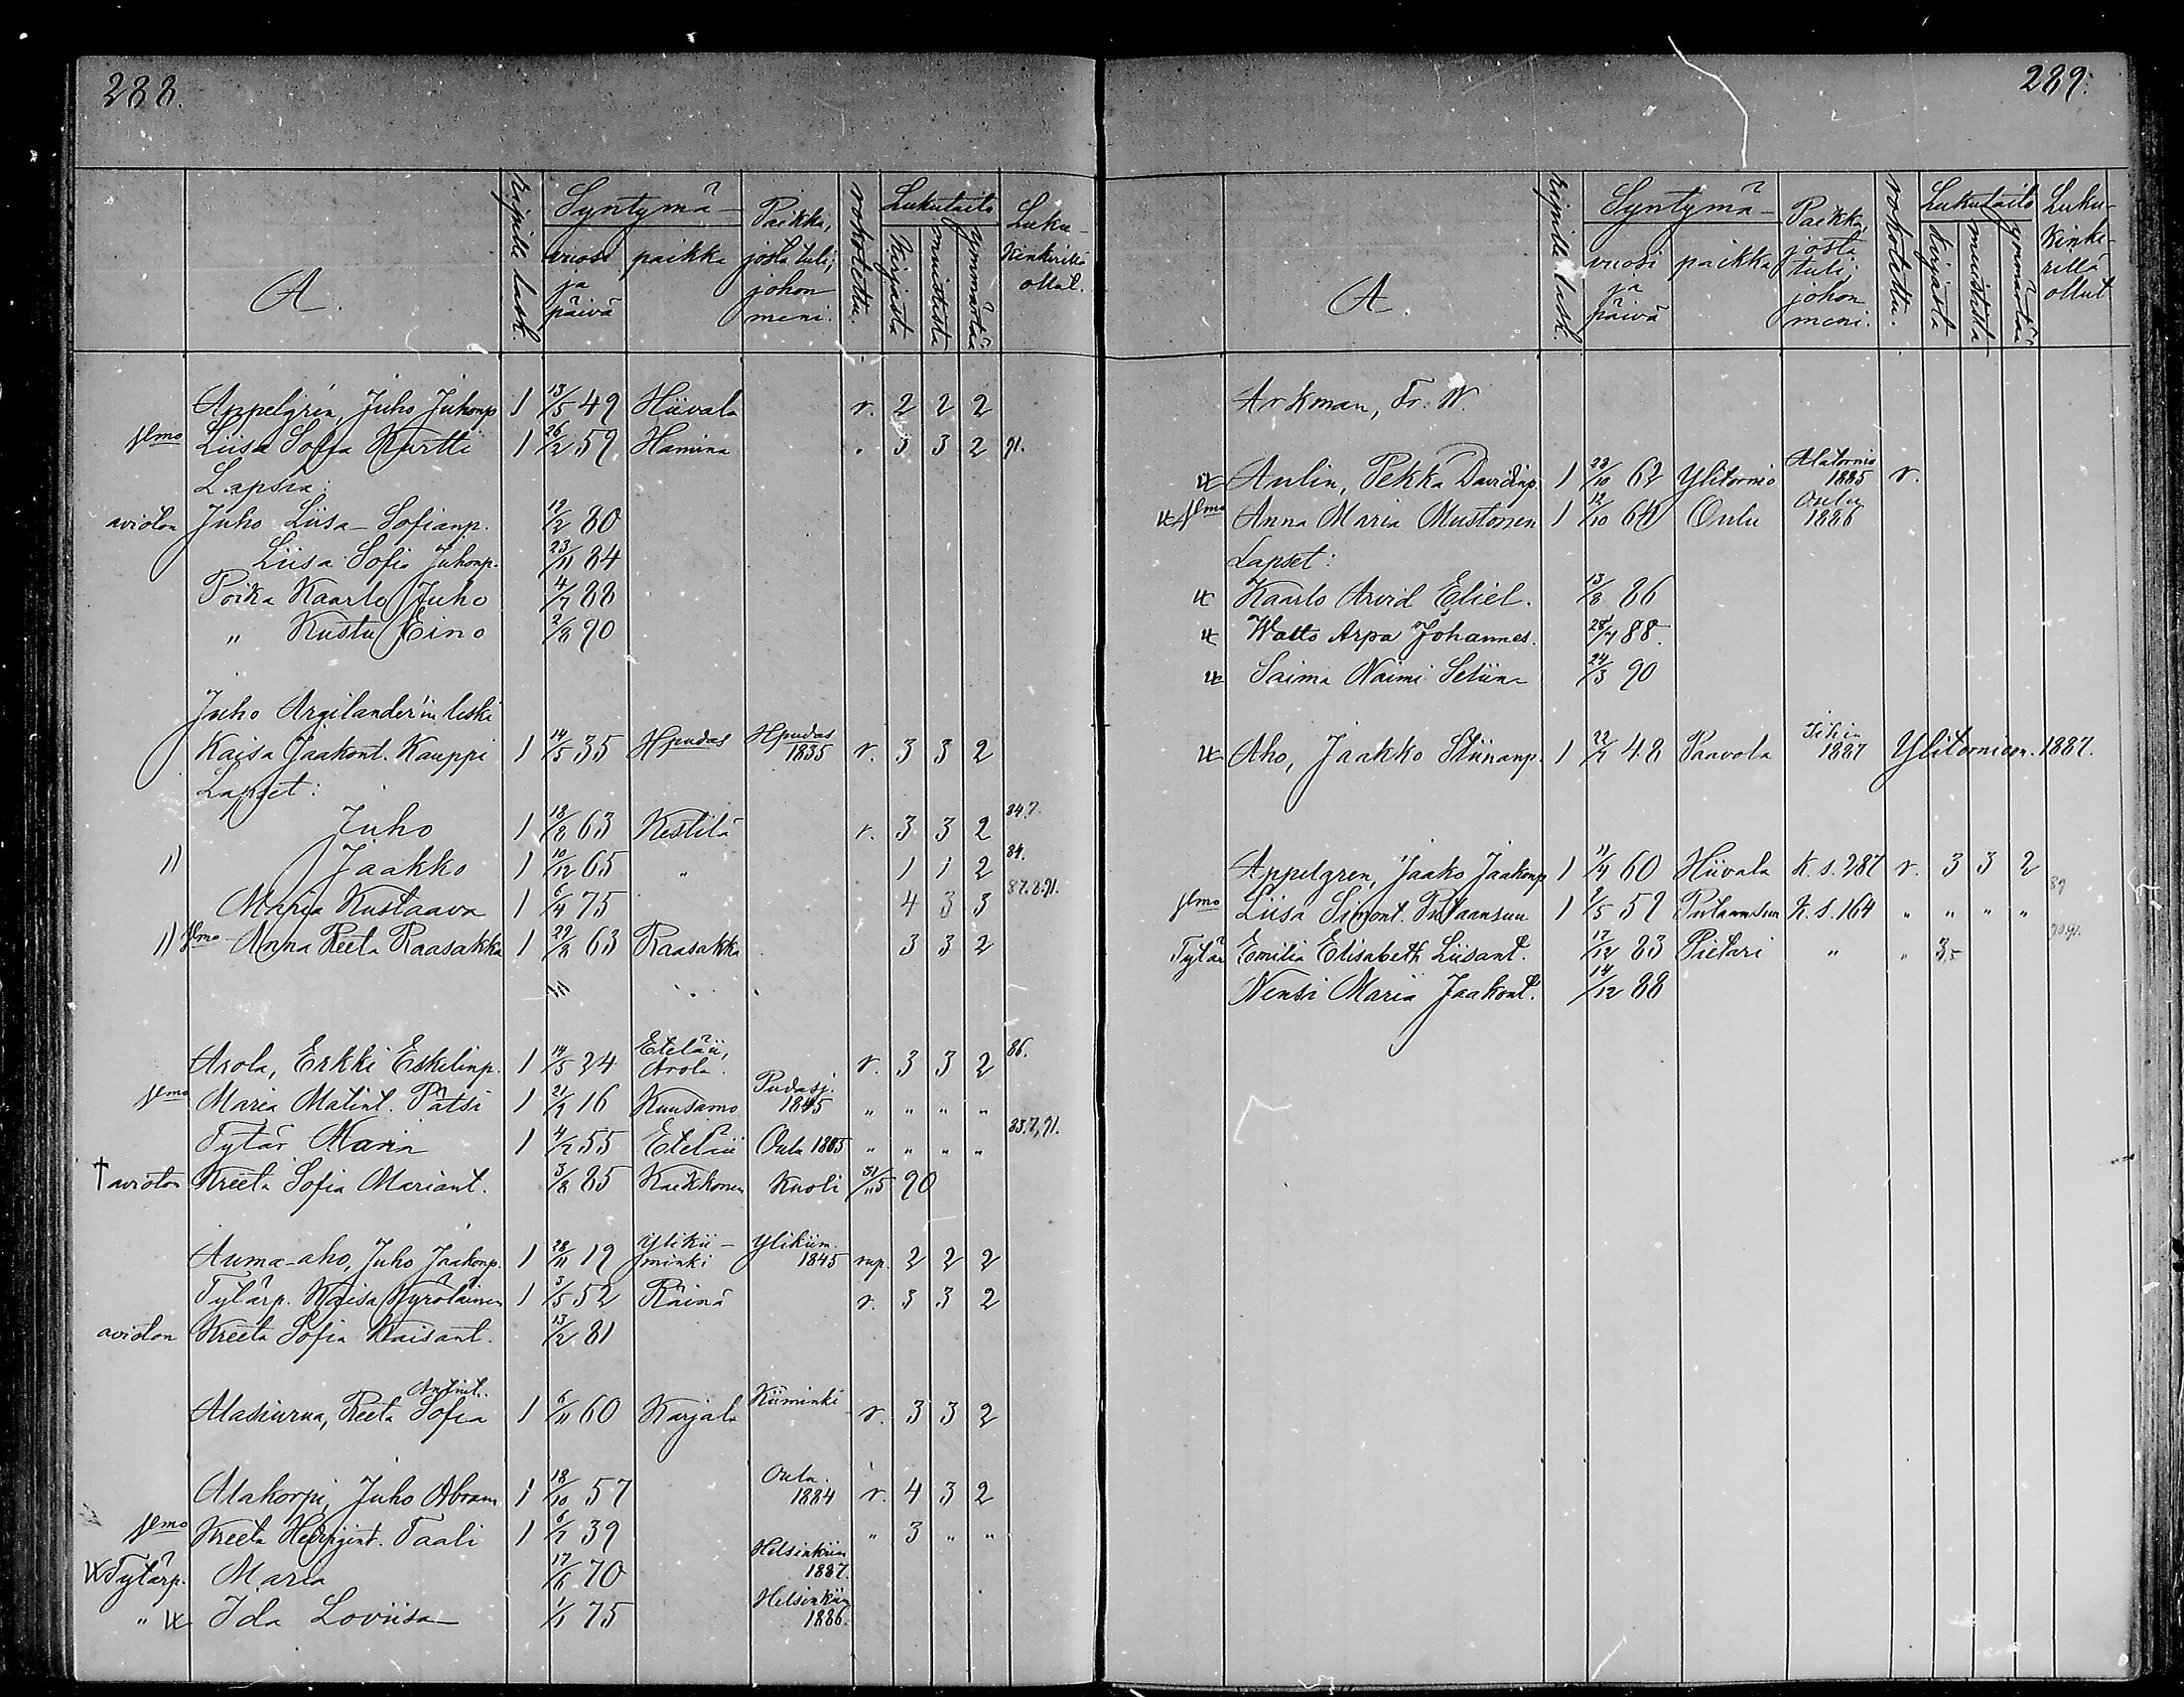 288.
A.
Ripille lask.
Syntymä-
vuosi ja päivä
paikka
Paikka, josta tuli, johon meni.
rokotettu.
Lukutaito
kirjasta
muistista
ymmärtää
Luku-Kinkerillä ollut.
Appelgrén, Juho Juhonp 1 13/5 49 Hiivala r. 2 2 2
Liisa Sofia Kurtti 1 26/2 59 Hamina 3 3 2 91.
Lapsia:
aviöton Juho Liisa-Sofianp. 12/2 80
Liisa Sofia Juhonp. 23/11 84
Poika Kaarlo Juho 4/7 88
" Kustu Eino 2/8 90
Juho Argilander'in leski
Kaisa Jaakont. Kauppi 1 14/5 35 Hpudas Hpudas 1835 r. 3 3 2
Lapset:
Juho 1 18/8 63 Kestilä r. 3 3 2 84.7.
Jaakko 1 10/12 65 " 1 1 2 84.
Maria Kustaava 1 6/4 75 4 3 3 87.8.91.
Anna Reeta Raasakka 1 29/8 63 Raasakka 3 3 2
Arola, Erkki Eskelinp. 1 14/5 24 Eteläii, Arola. r. 3 3 2 86.
Maria Matint. Pätsi 1 21/9 16 Kuusamo Pudasj. 1845 " " " "
Tytär Maria 1 4/7 55 Eteläii Oulu 1885 " " " " 83.7,91.
† aviöton Kreeta Sofia Mariant. 3/8 85 Kaikkonen Kuoli 31/5 90
Auma-aho, Juho Jaakonp. 1 28/11 19 Ylikii-minki Ylikiim. 1845 rup. 2 2 2
Tytärp. Kaisa Kyröläinen 1 3/5 52 Räinä r. 3 3 2
aviöton Kreeta Sofia Kaisant. 13/2 81
Antint.
Alasiurua, Reeta Sofia 1 6/11 60 Karjala Kiiminki r. 3 3 2
Alakorpi, Juho Abram 1 18/10 57 Oulu. 1884 r. 4 3 2
Kreeta Heikint. Taali 1 6/7 39 " 3 " "
Tytärp. Maria 17/6 70 Helsinkiin 1887.
" Ida Loviisa 1/1 75 Helsinkiin 1886.
289.
A.
Ripille lask.
Syntymä-
vuosi ja päivä
paikka
Paikka, josta tuli, johon meni.
rokotettu.
Lukutaito
kirjasta
muistista
ymmärtää
Luku-kinke-rillä ollut
Arkman, Fr. W.
Aulin, Pekka Davidinp. 1 22/10 62 Ylitornio Alatornio 1885 r.
Anna Maria Mustonen 1 12/10 64 Oulu Oulu 1886
Lapset:
Kaarlo Arvid Eliel. 13/8 86
Watto Arpa Johannes. 28/7 88.
Saima Naimi Seliina 24/3 90
Aho, Jaakko Stiinanp. 1 22/7 48 Paavola Iihin 1887 Ylitornioon. 1887.
Appelgren, Jaako Jaakonp 1 11/4 60 Hiivala K. s. 287 r. 3 3 2
Liisa Simont. Putaansuu 1 9/5 59 Putaansuu K. s. 164 " " " " 89
Tytär Emilia Elisabeth Liisant. 17/12 83 Pietari " " 3,5 90.91.
Nensi Maria Jaakont. 14/12 88